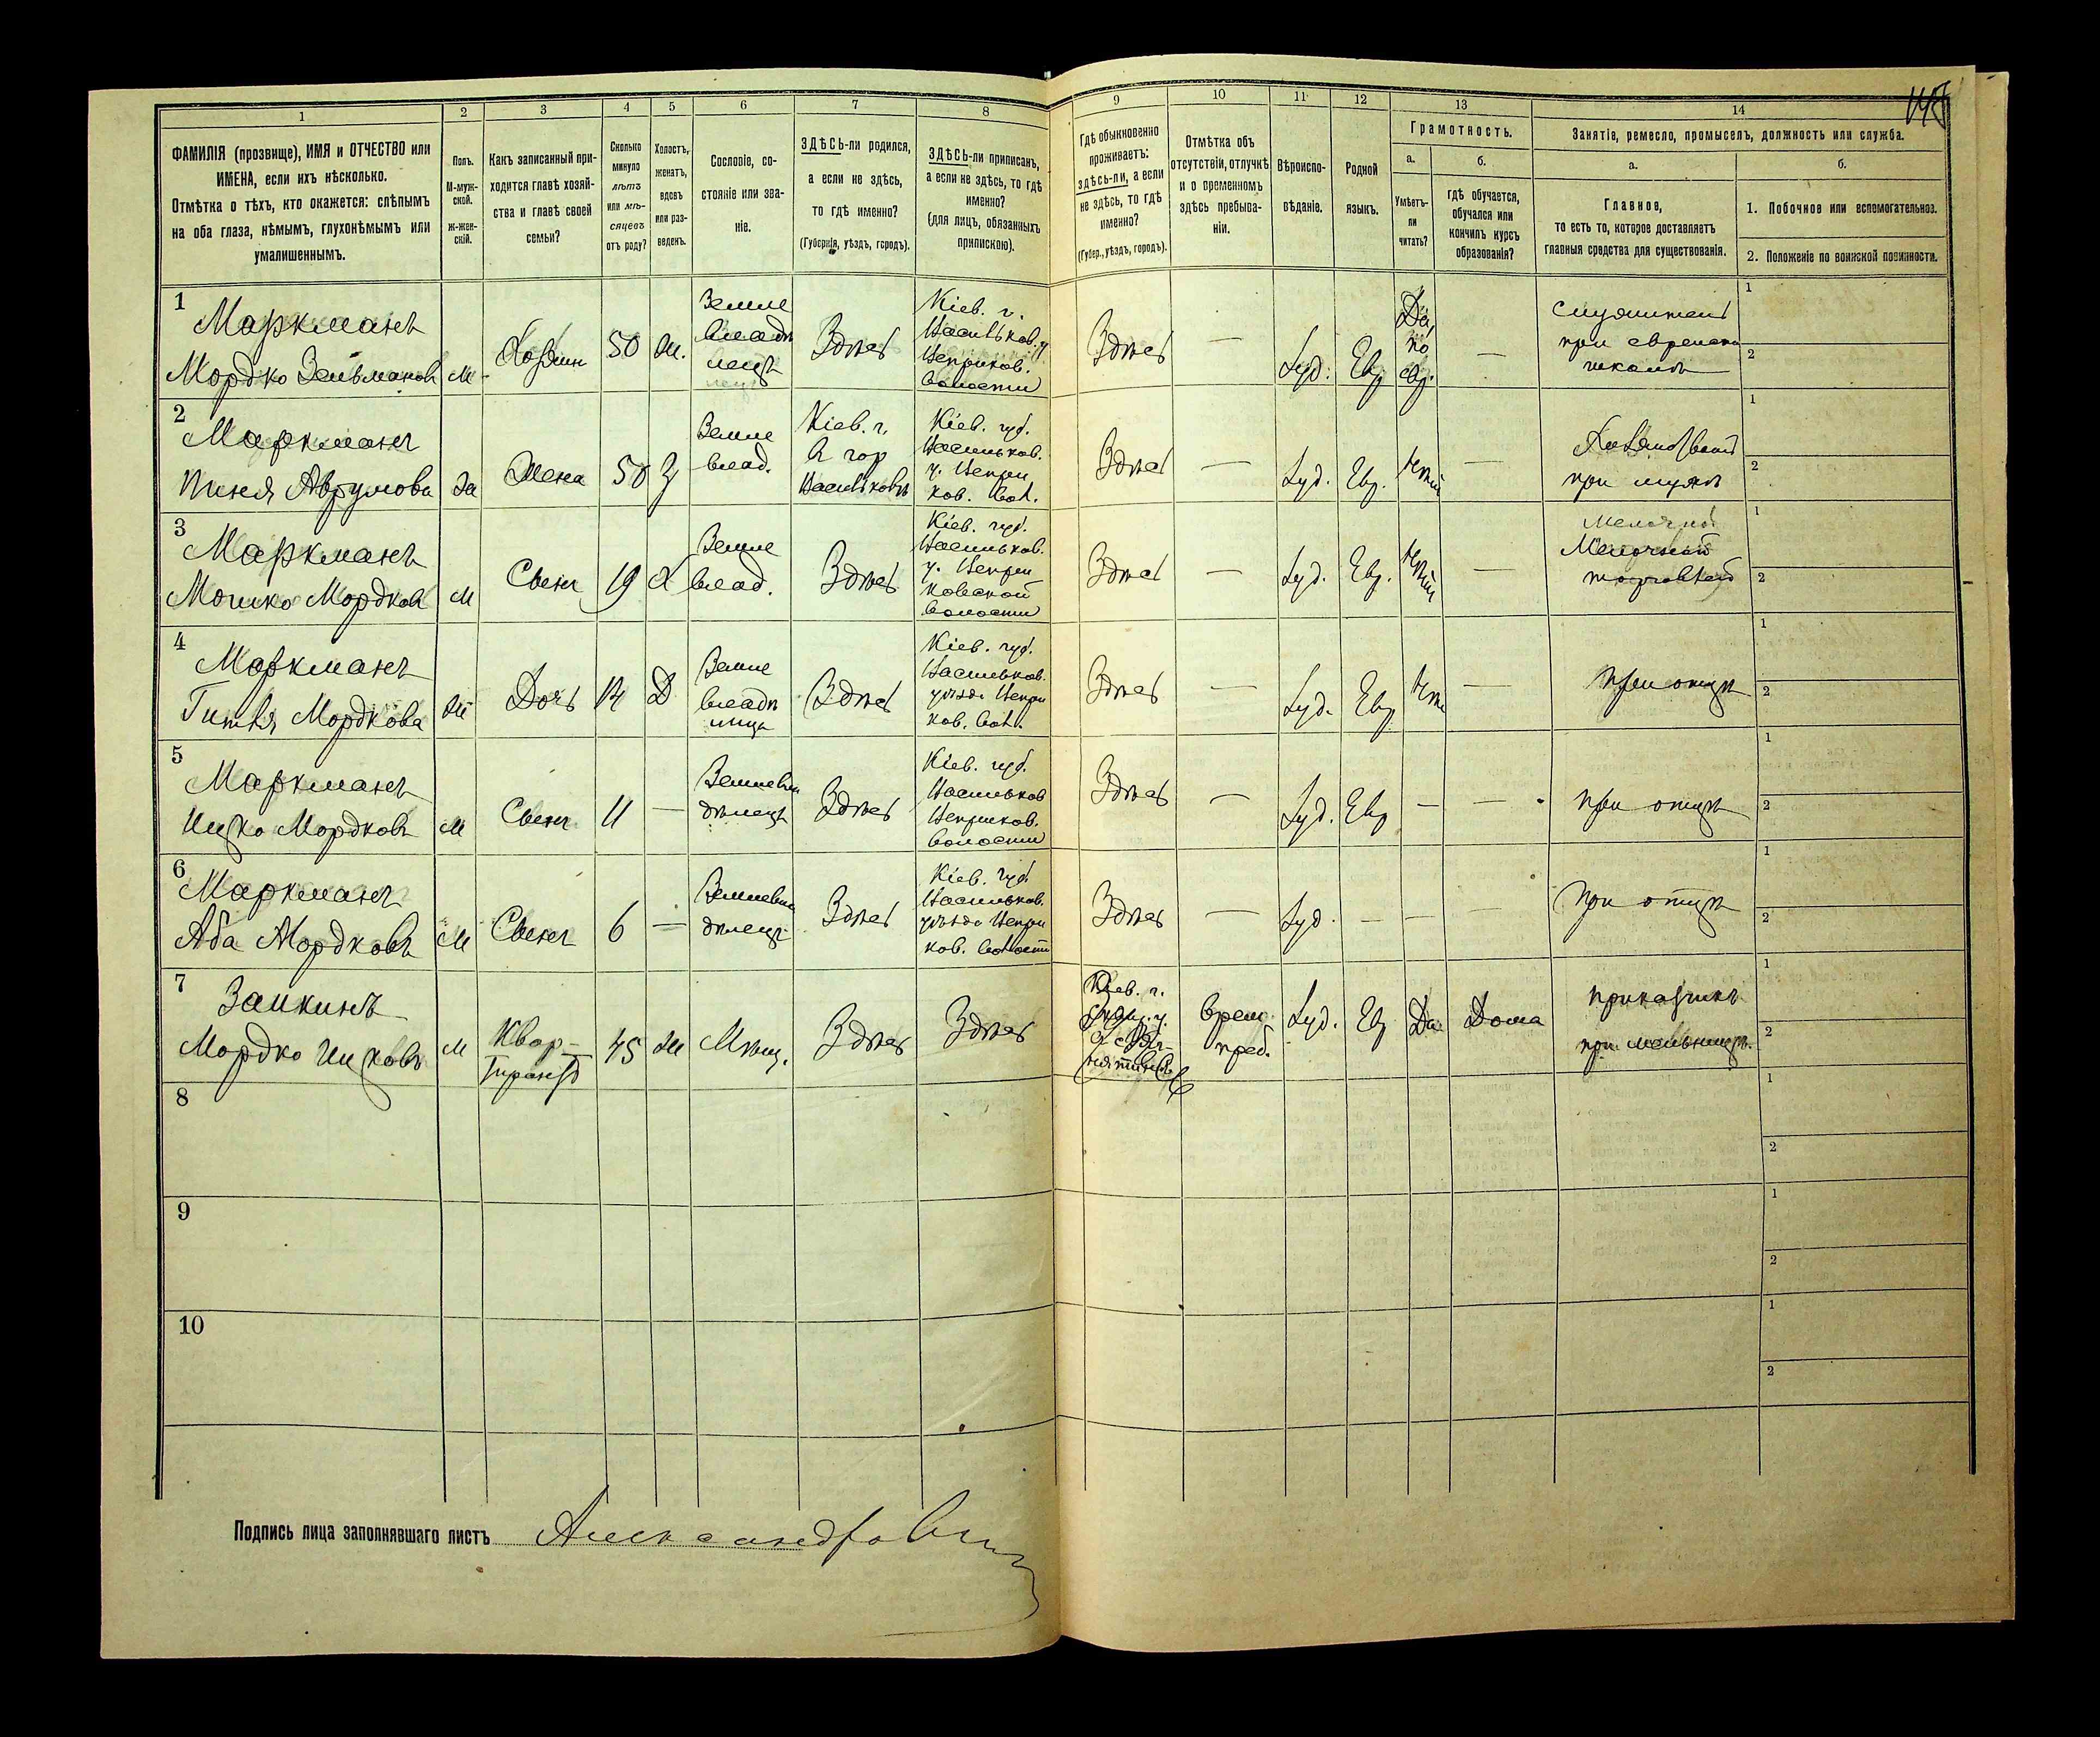 1 2 3 4 5 6 7 8
ФАМИЛІЯ (прозвище), ИМЯ и ОТЧЕСТВО или
ИМЕНА, если ихъ нѣсколько.
Отмѣтка о тѣхъ, кто окажется: слѣпымъ
на оба глаза, нѣмымъ, глухонѣмымъ или
умалишеннымъ.
Полъ.
М-муж-
ской.
ж-жен-
скій.
Какъ записанный при-
ходится главѣ хозяй-
ства и главѣ своей
семьи?
Сколько
минуло
лѣтъ
или мѣ-
сяцевъ
отъ роду?
Холостъ,
женатъ,
вдовъ
или раз-
веденъ.
Сословіе, со-
стояніе или зва-
ніе.
ЗДѢСЬ-ли родился,
а если не здѣсь,
то гдѣ именно?
(Губернія, уѣздъ, городъ).
ЗДѢСЬ-ли приписанъ,
а если не здѣсь, то гдѣ
именно?
(для лицъ, обязанныхъ
припискою).
9 10 11 12 13 14
Гдѣ обыкновенно
проживаетъ:
здѣсь-ли, а если
не здѣсь, то гдѣ
именно?
(Губер., уѣздъ, городъ).
Отмѣтка объ
отсутствіи, отлучкѣ
и о временномъ
здѣсь пребыва-
ніи.
Вѣроиспо-
вѣданіе.
Родной
языкъ.
Грамотность.
а.
Умѣетъ-
ли
читать?
б.
гдѣ обучается,
обучался или
кончилъ курсъ
образованія?
Занятіе, ремесло, промыселъ, должность или служба.
а.
Главное,
то есть то, которое доставляетъ
главныя средства для существованія.
б.
1. Побочное или вспомогательное.
2. Положеніе по воинской повинности.
1
Маркманъ
Мордко Зельмановъ
М
Хозяин
50
Ж.
Земле
владѣ
лецъ
Здѣсь
Кіев. г.
Васильков. у
волости
Здѣсь
—
Іуд.
Евр
Да,
по
евр.
—
при еврейской
школѣ
1
2
2
Маркманъ
Аврумова
Жена
50
З
Земле
влад.
Кіев. г.
В гор
Васильковѣ
Кіев. губ.
Васильков.
Здѣсь
—
Іуд.
Евр.
Нѣтъ
—
при мужѣ
1
2
3
Маркманъ
Мошко Мордков
М
Сынъ
19
Х
Земле
влад.
Здѣсь
Кіев. губ.
Васильков.
волости
Здѣсь
—
Іуд.
Евр.
Нѣтъ
—
Мелочной
торговлей
1
2
4
Маркманъ
Гитля Мордкова
Ж
Дочь
14
Д
Земле
владѣ
лица
Здѣсь
Кіев. губ.
Васильков.
Здѣсь
—
Іуд.
Евр
—
при отцѣ
1
2
5
Маркманъ
Ицко Мордковъ
М
Сынъ
11
—
Землевла
дѣлецъ
Здѣсь
Кіев. губ.
Васильков
волости
Здѣсь
—
Іуд.
Евр
—
—
при отцѣ
1
2
6
Маркманъ
Аба Мордковъ
М
Сынъ
6
—
Землевла
дѣлецъ
Здѣсь
Кіев. губ
Васильков.
Здѣсь
—
Іуд.
—
—
—
При отцѣ
1
2
7
Заикинъ
Мордко Ицковъ
М
Квар-
тирантъ
45
Ж
Мѣщ.
Здѣсь
Здѣсь
Кіев. г.
Врем.
преб.
Іуд.
Евр
Да
Дома
Приказчикъ
при мельницѣ.
1
2
8
1
2
9
1
2
10
1
2
Подпись лица заполнявшаго листъ